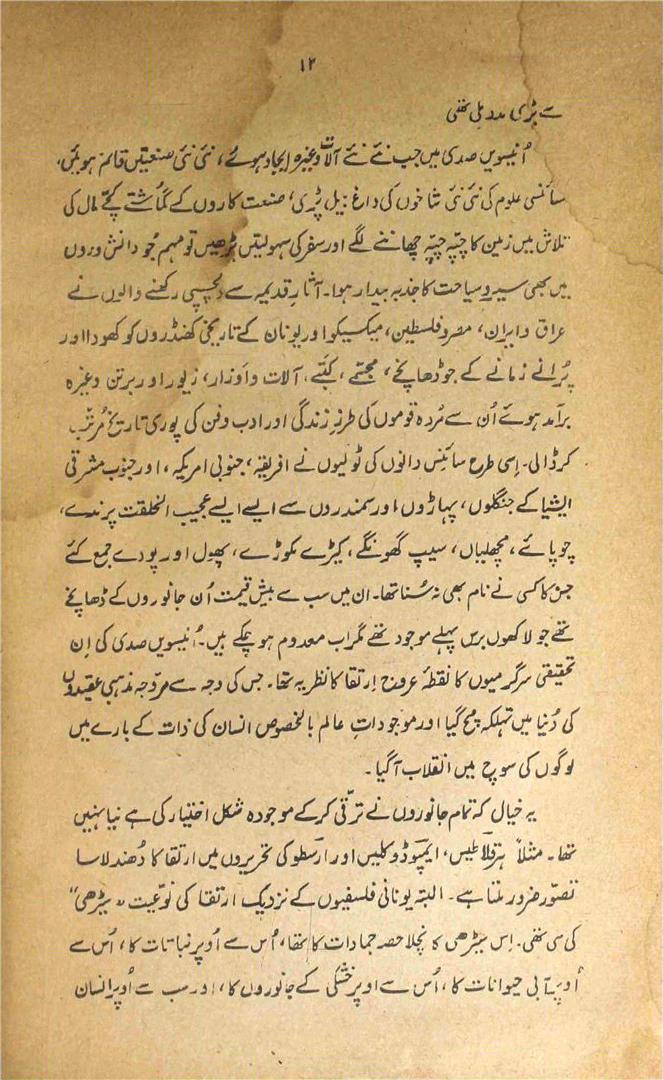 ۱۲
سے بڑی مدد ملی تھی
اُنیسویں صدی میں جب نئے نئے آلات وغیرہ ایجاد ہوئے، نئی نئی صنعتیں قائم ہوئیں،
سائنسی علوم کی نئی نئی شاخوں کی داغ بیل پڑی، صنعت کاروں کے گماشتے کچّے مال کی
تلاش میں زمین کا چپّہ چپّہ چھاننے لگے اور سفر کی سہولیتیں بڑھیں تو مہم جُو دانش وروں
میں بھی سیر و سیاحت کا جذبہ بیدار ہوا۔ آثارِ قدیمہ سے دلچسپی رکھنے والوں نے
عراق و ایران، مصر و فلسطین، میکسیکو اور یونان کے تاریخی کھنڈروں کو کھودا اور
پُرانے زمانے کے جو ڈھانچے، مجسّمے، کتبے، آلات و اَوزار، زیور اور برتن وغیرہ
برآمد ہوئے اُن سے مُردہ قوموں کی طرزِ زندگی اور ادب و فن کی پوری تاریخ مُرتّب
کر ڈالی۔ اِسی طرح سائنس دانوں کی ٹولیوں نے افریقہ، جنوبی امریکہ، اور جنوب مشرقی
ایشیا کے جنگلوں، پہاڑوں اور سمندروں سے ایسے ایسے عجیب الخلقت پرندے،
چوپائے، مچھلیاں، سیپ گھونگے، کیڑے مکوڑے، پھول اور پودے جمع کئے
جن کا کسی نے نام بھی نہ سُنا تھا۔ ان میں سب سے بیش قیمت اُن جانوروں کے ڈھانچے
تھے جو لاکھوں برس پہلے موجود تھے مگر اب معدوم ہو چکے ہیں۔ اُنیسویں صدی کی اِن
تحقیقی سرگرمیوں کا نقطۂ عروج اِرتقا کا نظریہ تھا۔ جس کی وجہ سے مروّجہ مذہبی عقیدوں
کی دُنیا میں تہلکہ مچ گیا اور موجوداتِ عالم بالخصوص انسان کی ذات کے بارے میں
لوگوں کی سوچ میں انقلاب آ گیا۔
یہ خیال کہ تمام جانوروں نے ترقّی کر کے موجودہ شکل اختیار کی ہے نیا نہیں
تھا۔ مثلاً ہرقلاطیس، ایمپوڈوکلیس اور ارسطو کی تحریروں میں ارتقا کا دُھندلا سا
تصوّر ضرور ملتا ہے۔ البتہ یونانی فلسفیوں کے نزدیک ارتقا کی نوعیت "سیڑھی"
کی سی تھی۔ اِس سیڑھی کا نچلا حصہ جمادات کا تھا، اُس سے اُوپر نباتات کا، اُس سے
اُوپر آبی حیوانات کا، اُس سے اوپر خشکی کے جانوروں کا، اور سب سے اُوپر انسان